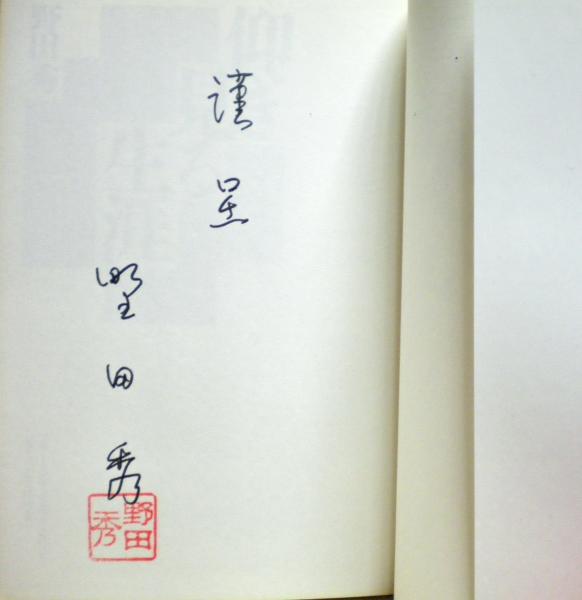 謹呈
野田秀
野田
秀